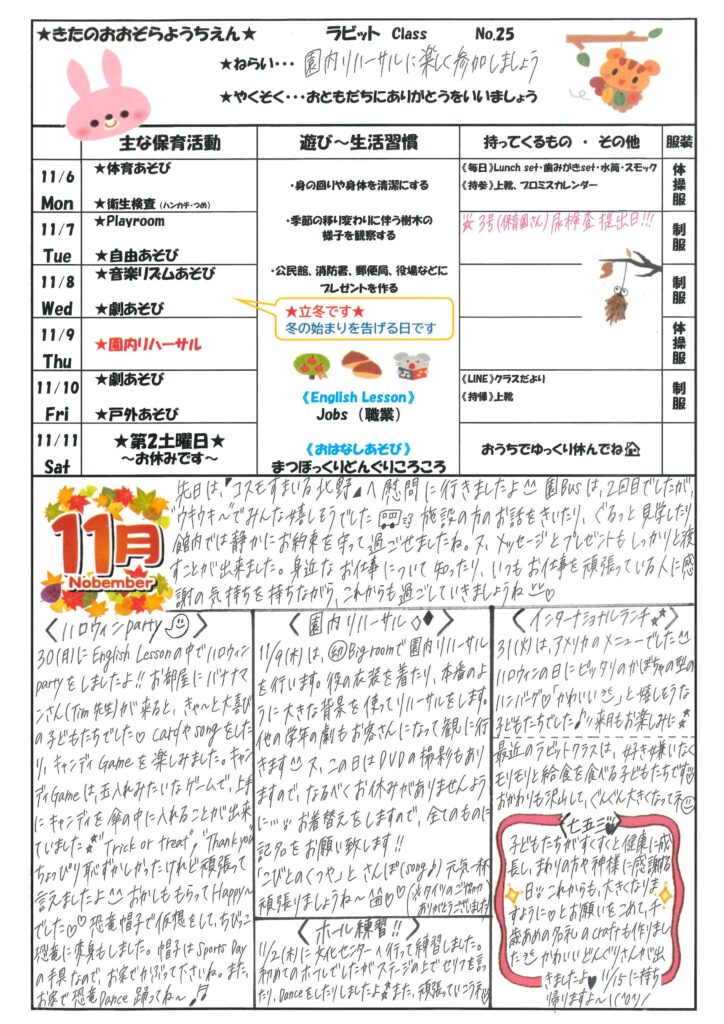 ★きたのおおぞらようちえん★
ラビット Class No.25
★ねらい・・・ 園内リハーサルに楽しく参加しましょう
★やくそく・・・おともだちにありがとうをいいましょう
主な保育活動 遊び～生活習慣 持ってくるもの ・ その他 服装
11/6 Mon
★体育あそび
★衛生検査 (ハンカチ・つめ)
・身の回りや身体を清潔にする
《毎日》Lunch set・歯みがきset・水筒・スモック
《持参》上靴、プロミスカレンダー
体操服
11/7 Tue
★Playroom
★自由あそび
・季節の移り変わりに伴う樹木の
様子を観察する
★3号(保育園さん)尿検査提出日!!!
制服
11/8 Wed
★音楽リズムあそび
★劇あそび
・公民館、消防署、郵便局、役場などに
プレゼントを作る
制服
★立冬です★
冬の始まりを告げる日です
11/9 Thu
★園内リハーサル
体操服
11/10 Fri
★劇あそび
★戸外あそび
《English Lesson》
Jobs (職業)
《LINE》クラスだより
《持帰》上靴
制服
11/11 Sat
★第2土曜日★
～お休みです～
《おはなしあそび》
まつぼっくりどんぐりころころ
おうちでゆっくり休んでね
11月
Nobember
先日は、『コスモすまいる北野』へ慰問に行きましたよ 園Busは、2回目でしたが、
"ウキウキ～"でみんな嬉しそうでした 施設の方のお話をきいたり、ぐるっと見学したり
館内では静かにお約束を守って過ごせましたね。又、メッセージとプレゼントもしっかりと渡
すことが出来ました。身近なお仕事について知ったり、いつもお仕事を頑張っている人に感
謝の気持ちを持ちながら、これからも過ごしていきましょうね
〈ハロウィンparty〉
30(月)にEnglish Lessonの中でハロウィン
partyをしましたよ!! お部屋にバナナマ
ンさん(Tim先生)が来ると、きゃ～と大喜び
の子どもたちでした♡ Cardやsongをした
り、キャンディGameを楽しみました。キャン
ディGameは、玉入れみたいなゲームで、上手
にキャンディを傘の中に入れることが出来
ていました "Trick or treat", "Thank you"
ちょっぴり恥ずかしかったけれど頑張って
言えましたよ おかしももらってHappy～
でした♡ 恐竜帽子で仮想をして、ちびっこ
恐竜に変身もしました。帽子はSports Day
の手具なので、お家でかぶって下さいね。また、
お家で恐竜Dance踊ってね～♫
〈園内リハーサル◇◆〉
11/9(木)は、㊙Big roomで園内リハーサル
を行います。役の衣装を着たり、本番のよ
うに大きな背景を使ってリハーサルをします。
他の学年の劇もお客さんになって観に行
きます 又、この日はDVDの撮影もあり
ますので、なるべくお休みがありませんよう
に… お着替えをしますので、全てのものに
記名をお願い致します!!
「こびとのくつや」と さんぽ(song♪) 元気一杯
頑張りましょうね～♡ (※タイツのご協力
ありがとうございました)
〈ホール練習!!〉
11/2(木)に文化センターへ行って練習しました。
初めてのホールでしたがステージの上でセリフを言っ
たり、Danceをしたりしましたよ また、頑張っていこうネ
〈インターナショナルランチ〉
31(火)は、アメリカのメニューでした
ハロウィンの日にピッタリのかぼちゃの型の
ハンバーグ♡「かわいい」と嬉しそうな
子どもたちでした♪ 来月もお楽しみに
最近のラビットクラスは、好き嫌いなく
モリモリと給食を食べる子どもたちです
おかわりも沢山して、ぐんぐん大きくなってネ
〈七五三♥〉
子どもたちがすくすくと健康に成
長し、まわりの方や神様に感謝する
日。これからも、大きくなりま
すように♡とお願いをこめて、千
歳あめの名札のcraftも作りまし
た かわいいどんぐりさんが出
きましたよ♥ 11/15に持ち
帰りますよ～